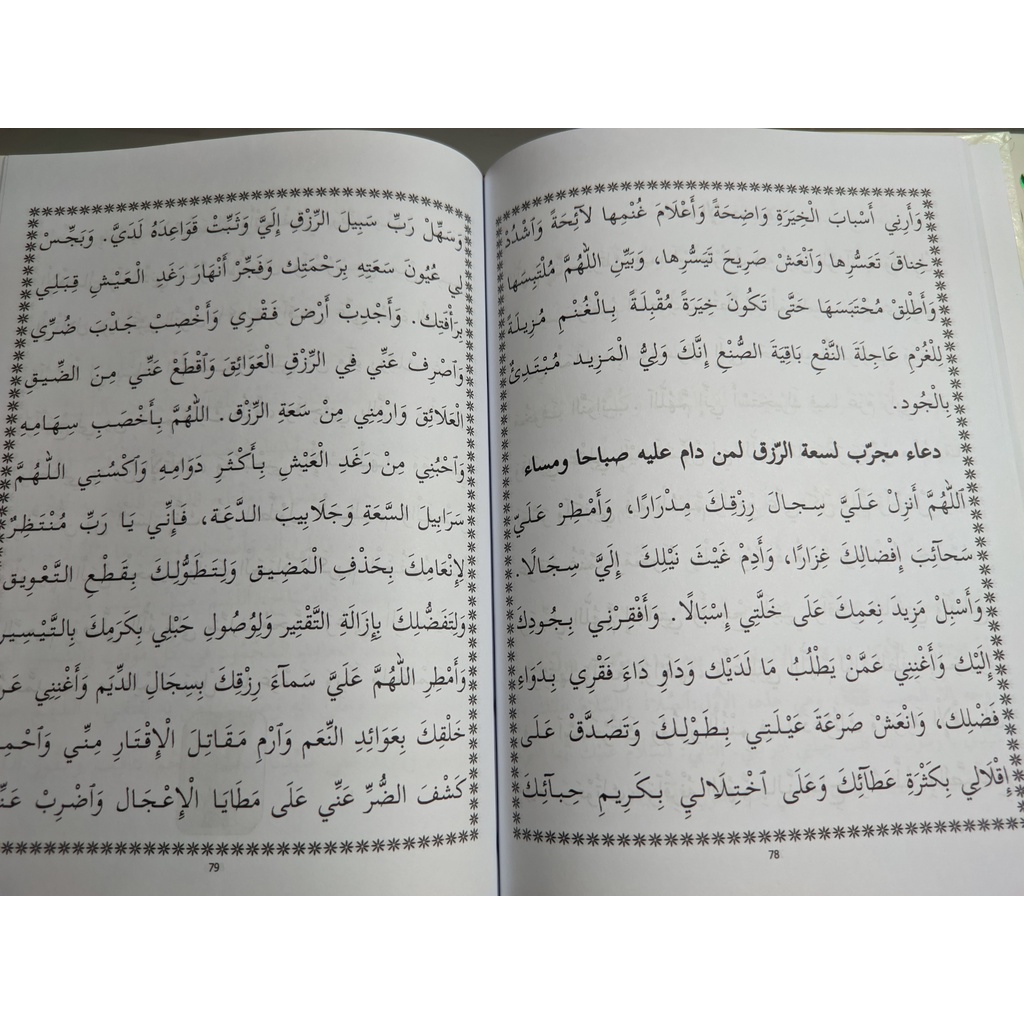 وَأَرِنِي أَسْبابَ الْخِيَرَةِ وَاضِحَةً وَأَعْلَامَ غُنْمِها لَآئِحَةً وَٱشْدُدْ
خِناقَ تَعَسُّرِها وَانْعَشْ صَرِيحَ تَيَسُّرِها، وَبَيِّنِ اللّٰهُمَّ مُلْتَبِسَها
وَأَطْلِقْ مُحْتَبَسَهَا حَتَّى تَكُونَ خِيَرَةً مُقْبِلَةً بِالْغُنْمِ مُزِيلَةً
لِلْغُرْمِ عَاجِلَةَ النَّفْعِ بَاقِيَةَ الصُّنْعِ إِنَّكَ وَلِيُّ الْمَزِيدِ مُبْتَدِئٌ
بِالْجُودِ.
دعاء مجرّب لسعة الرّزق لمن دام عليه صباحا ومساء
اَللّٰهُمَّ أَنزِلْ عَلَيَّ سِجالَ رِزْقِكَ مِدْرَارًا، وَأَمْطِرْ عَلَيَّ
سَحآئِبَ إِفْضالِكَ غِزَارًا، وَأَدِمْ غَيْثَ نَيْلِكَ إِلَيَّ سِجَالًا.
وَأَسْبِلْ مَزِيدَ نِعَمِكَ عَلَى خَلَّتِي إِسْبَالًا. وَأَفْقِرْنِي بِجُودِكَ
إِلَيْكَ وَأَغْنِنِي عَمَّنْ يَطْلُبُ مَا لَدَيْكَ وَدَاوِ دَاءَ فَقْرِي بِدَوَاءِ
فَضْلِكَ، وَانْعَشْ صَرْعَةَ عَيْلَتِي بِطَوْلِكَ وَتَصَدَّقْ عَلَى
إِقْلَالِي بِكَثْرَةِ عَطَآئِكَ وَعَلَى ٱخْتِلَالِي بِكَرِيمِ حِبآئِكَ
78
وَسَهِّلْ رَبِّ سَبِيلَ الرِّزْقِ إِلَيَّ وَثَبِّتْ قَوَاعِدَهُ لَدَيَّ. وَبَجِّسْ
لِي عُيُونَ سَعَتِهِ بِرَحْمَتِك وَفَجِّرْ أَنْهَارَ رَغَدِ الْعَيْشِ قِبَلِي
بِرَأْفَتِك. وَأَجْدِبْ أَرْضَ فَقْرِي وَأَخْصِبْ جَدْبَ ضُرِّي
وَٱصْرِفْ عَنِّي فِي الرِّزْقِ الْعَوَائِقَ وَٱقْطَعْ عَنِّي مِنَ الضِّيقِ
الْعَلَائِقَ وَارْمِنِي مِنْ سَعَةِ الرِّزْقِ. اللّٰهُمَّ بِأَخْصَبِ سِهَامِهِ
وَٱحْبُنِي مِنْ رَغَدِ الْعَيْشِ بِأَكْثَرِ دَوَامِهِ وَٱكْسُنِي اللّٰهُمَّ
سَرَابِيلَ السَّعَةِ وَجَلَابِيبَ الدَّعَة، فَإِنِّي يَا رَبِّ مُنْتَظِرٌ
لِإِنْعَامِكَ بِحَذْفِ الْمَضِيقِ وَلِتَطَوُّلِكَ بِقَطْعِ التَّعْوِيقِ
وَلِتَفَضُّلِكَ بِإِزَالَةِ التَّقْتِيرِ وَلِوُصُولِ حَبْلِي بِكَرَمِكَ بِالتَّيْسِيرِ
وَأَمْطِرِ اللّٰهُمَّ عَلَيَّ سَمآءَ رِزْقِكَ بِسِجَالِ الدِّيَمِ وَأَغْنِنِي عَن
خَلْقِكَ بِعَوَائِدِ النِّعَمِ وَٱرْمِ مَقَاتِلَ الْإِقْتَارِ مِنِّي وَٱحْمِ
كَشْفَ الضُّرِّ عَنِّي عَلَى مَطَايَا الْإِعْجَالِ وَٱضْرِبْ عَنِّ
79